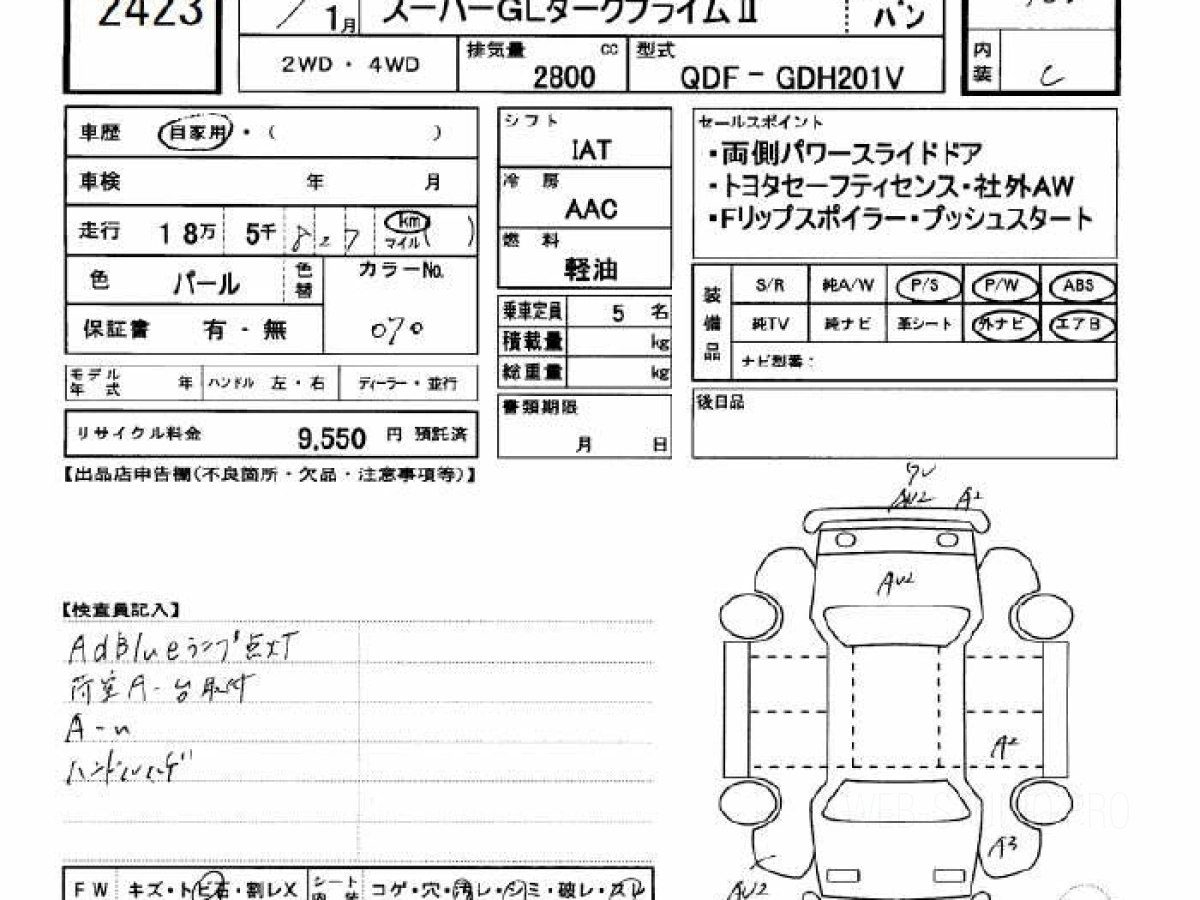 2423
1月
スーパーGLダークプライムⅡ
バン
2WD・4WD
排気量 cc
2800
型式
QDF－GDH201V
内装 C
車歴 自家用・( )
車検 年 月
走行 18万 5千 827 km マイル( )
色 パール 色替
カラーNo.
070
保証書 有・無
モデル年式 年 ハンドル 左・右 ディーラー・並行
リサイクル料金 9,550 円 預託済
シフト
IAT
冷房
AAC
燃料
軽油
乗車定員 5 名
積載量 kg
総重量 kg
書類期限
月 日
セールスポイント
・両側パワースライドドア
・トヨタセーフティセンス・社外AW
・Fリップスポイラー・プッシュスタート
装備品
S/R 純A/W P/S P/W ABS
純TV 純ナビ 革シート 外ナビ エアB
ナビ型番：
後日品
【出品店申告欄(不良箇所・欠品・注意事項等)】
ワレ
AU2 A2
AU2
A2
A3
AU2
【検査員記入】
AdBlueランプ点灯
荷室A-台取付
A-u
FW キズ・トビ石・割レX
シート内装 コゲ・穴・汚レ・シミ・破レ・スレ
WEB-STUDIO PRO